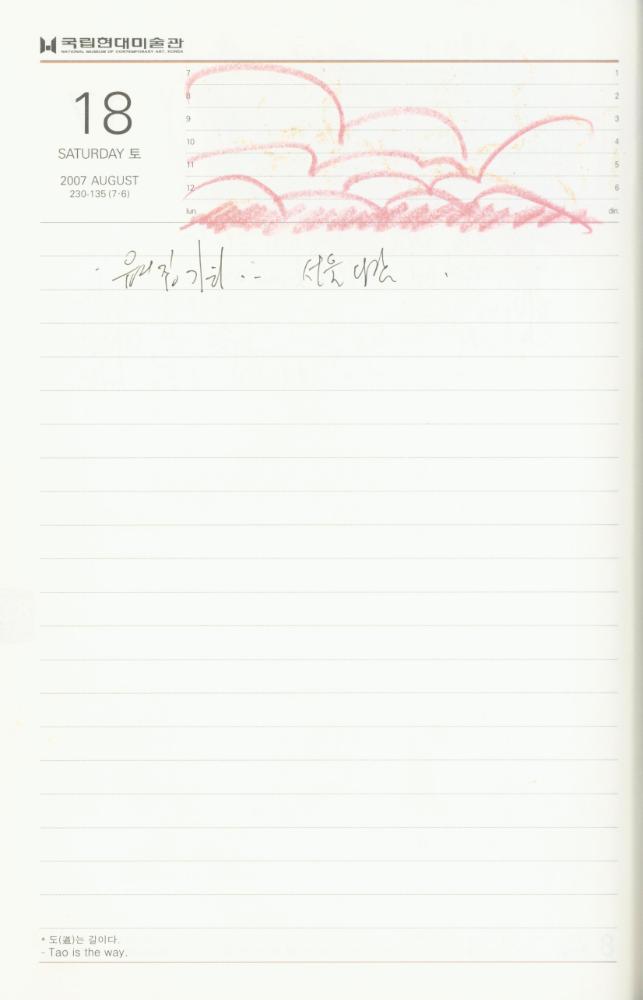 국립현대미술관
NATIONAL MUSEUM OF CONTEMPORARY ART, KOREA
18
SATURDAY 토
2007 AUGUST
230-135 (7·6)
7 1
8 2
9 3
10 4
11 5
12 6
lun. din.
서울
* 도(道)는 길이다.
- Tao is the way.